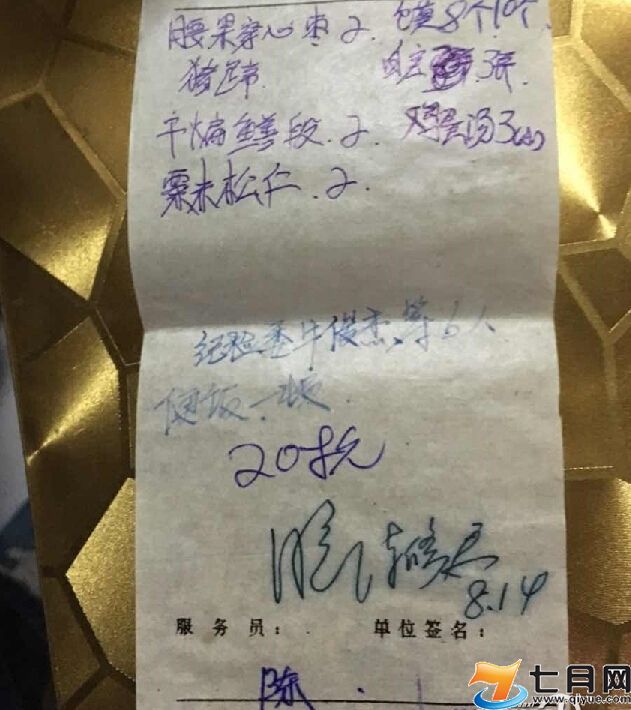 腰果穿心枣 2. 馍 8个 10个
猪蹄 3张
干煸鳝段. 2. 汤3
粟米松仁. 2.
纪检委牛俊杰,等6人
便饭一顿.
8.14
服务员: 单位签名:
陈
七月网
www.qiyue.com